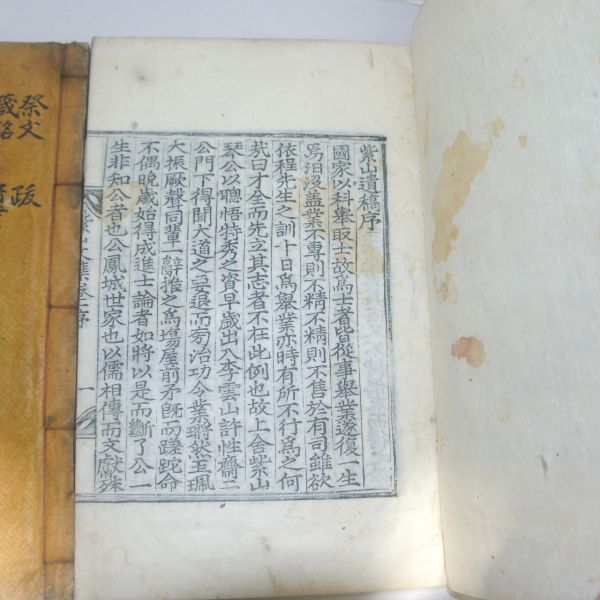 紫山遺稿序
國家以科擧取士故爲士者皆從事擧業遂復一生
焉汨沒盖業不專則不精不精則不售於有司雖欲
依程先生之訓十日爲擧業亦時有所不行爲之何
哉曰才全而先立其志者不在此例也故上舍紫山
琴公以聰悟特秀之資早歲出入李雲山許性齋二
公門下得聞大道之要退而
治功令業
玉珮
大振厥聲同輩一辭推之爲場屋前矛旣而蹉跎命
不偶晩歲始得成進士論者如將以是而斷了公一
生非知公者也公鳳城世家也以儒相傳而文獻殊
紫山文集卷一序
一
祭文
箴銘
跋